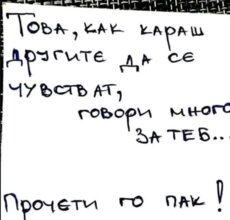 Това, как караш
другите да се
чувстват,
говори много
за теб...
Прочети го пак!